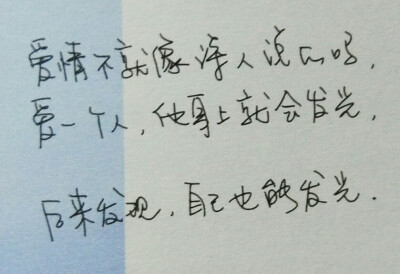 爱情不就像诗人说的吗,
爱一个人,他身上就会发光,
后来发现,自己也能发光.